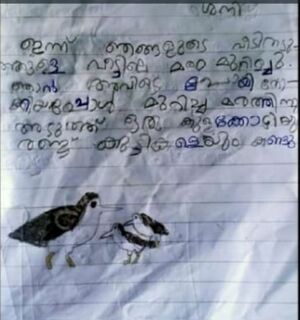 ശനി
ഇന്ന് ഞങ്ങളുടെ വീടിനടു
ത്തുള്ള വീട്ടിലെ മരം മുറിച്ചു.
ഞാൻ അവിടെ
മുറിച്ച മരത്തിന്
അടുത്ത് ഒരു കുളക്കോഴിയു
രണ്ട് കുഞ്ഞുങ്ങളെയും കണ്ടു